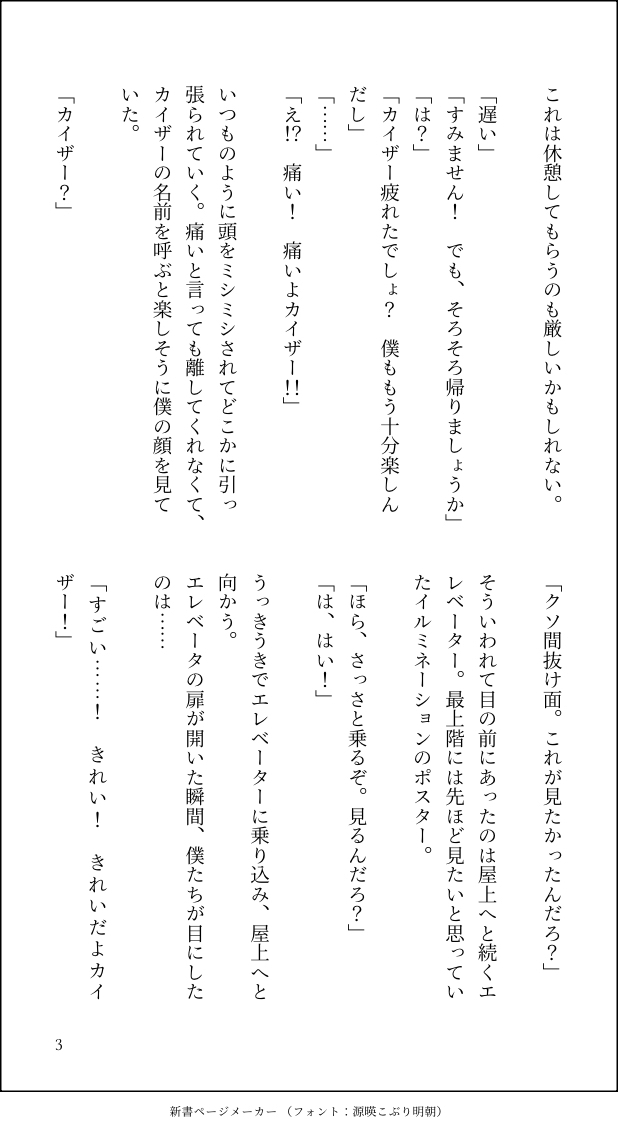 これは休憩してもらうのも厳しいかもしれない。
「遅い」
「すみません！　でも、そろそろ帰りましょうか」
「は？」
「カイザー疲れたでしょ？　僕ももう十分楽しん
だし」
「……」
「え!?　痛い！　痛いよカイザー!!」
いつものように頭をミシミシされてどこかに引っ
張られていく。痛いと言っても離してくれなくて、
カイザーの名前を呼ぶと楽しそうに僕の顔を見て
いた。
「カイザー？」
「クソ間抜け面。これが見たかったんだろ？」
そういわれて目の前にあったのは屋上へと続くエ
レベーター。最上階には先ほど見たいと思ってい
たイルミネーションのポスター。
「ほら、さっさと乗るぞ。見るんだろ？」
「は、はい！」
うっきうきでエレベーターに乗り込み、屋上へと
向かう。
エレベータの扉が開いた瞬間、僕たちが目にした
のは……
「すごい……！　きれい！　きれいだよカイ
ザー！」
3
新書ページメーカー（フォント：源暎こぶり明朝）